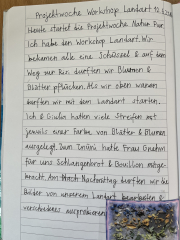 Projektwoche Workshop Landart 12.
Heute startet die Projektwoche Natur Pur.
Ich habe den Workshop Landart. Wir
bekamen alle eine Schüssel & auf dem
Weg zur Rin. durften wir Blumen &
Blätter pflücken. Als wir oben waren
durften wir mit dem Landart starten.
Ich & Giulia haben viele Streifen mit
jeweils einer Farbe von Blätter & Blumen
ausgelegt. Zum Znüni hatte Frau Gnehm
für uns Schlangenbrot & Bouillon mitge-
bracht. Am Nachmittag durften wir die
Bilder von unserem Landart bearbeiten &
verschiedenes ausprobieren.